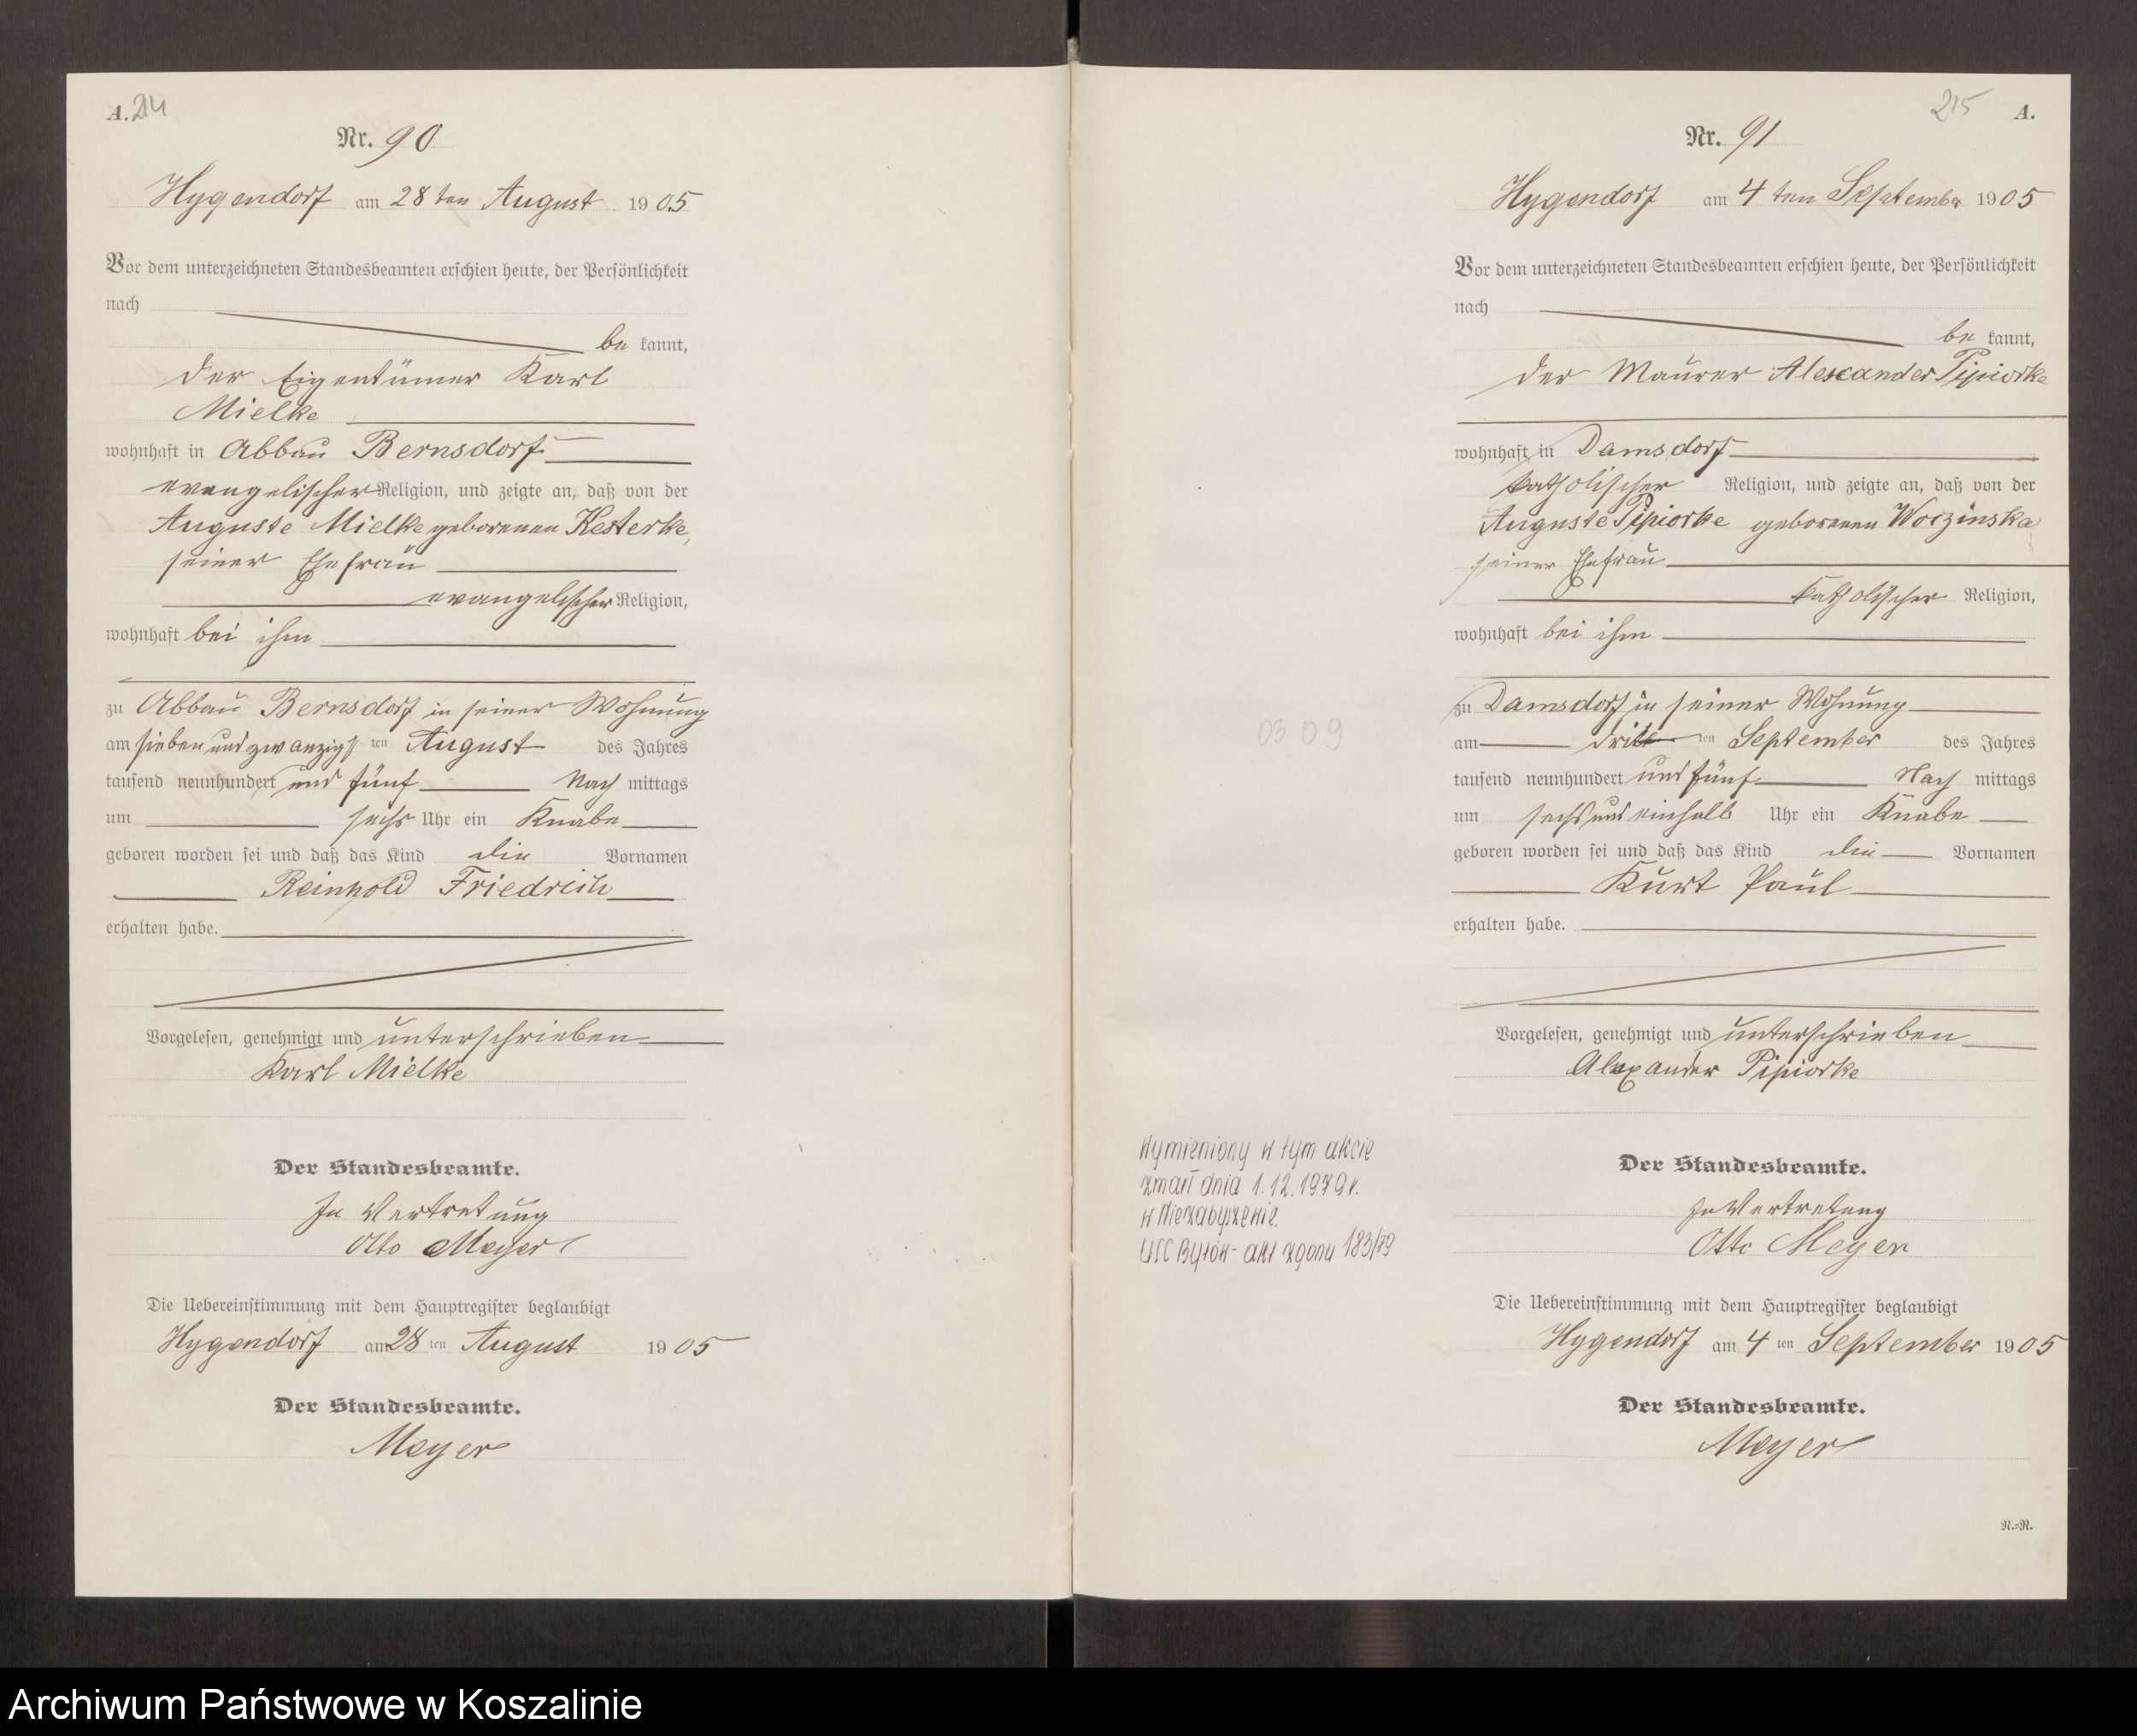 A. 214
Nr. 90
Hygendorf am 28 ten August 1905
Vor dem unterzeichneten Standesbeamten erschien heute, der Persönlichkeit
nach
be kannt,
der Eigentümer Karl
Mielke
wohnhaft in Abbau Bernsdorf
evangelischer Religion, und zeigte an, daß von der
Auguste Mielke geborenen Kesterke,
seiner Ehefrau
evangelischer Religion,
wohnhaft bei ihm
zu Abbau Bernsdorf in seiner Wohnung
am sieben und zwanzigs ten August des Jahres
tausend neunhundert und fünf Nach mittags
um sechs Uhr ein Knabe
geboren worden sei und daß das Kind die Vornamen
Reinhold Friedrich
erhalten habe.
Vorgelesen, genehmigt und unterschrieben
Karl Mielke
Der Standesbeamte.
In Vertretung
Otto Meyer
Die Uebereinstimmung mit dem Hauptregister beglaubigt
Hygendorf am 28 ten August 1905
Der Standesbeamte.
Meyer
215 A.
Nr. 91
Hygendorf am 4 ten September 1905
Vor dem unterzeichneten Standesbeamten erschien heute, der Persönlichkeit
nach
be kannt,
der Maurer Alexander Pipiorke
wohnhaft in Damsdorf
katholischer Religion, und zeigte an, daß von der
Auguste Pipiorke geborenen Worzinska
seiner Ehefrau
katholischer Religion,
wohnhaft bei ihm
zu Damsdorf in seiner Wohnung
am dritt ten September des Jahres
tausend neunhundert und fünf Nach mittags
um sechs und einhalb Uhr ein Knabe
geboren worden sei und daß das Kind die Vornamen
Kurt Paul
erhalten habe.
Vorgelesen, genehmigt und unterschrieben
Alexander Pipiorke
Der Standesbeamte.
In Vertretung
Otto Meyer
Die Uebereinstimmung mit dem Hauptregister beglaubigt
Hygendorf am 4 ten September 1905
Der Standesbeamte.
Meyer
N.=R.
03 09
Wymieniony w tym akcie
zmarł dnia 1.12.1979 r.
w Niezabyszewie.
USC Bytów - akt zgonu 183/79
Archiwum Państwowe w Koszalinie